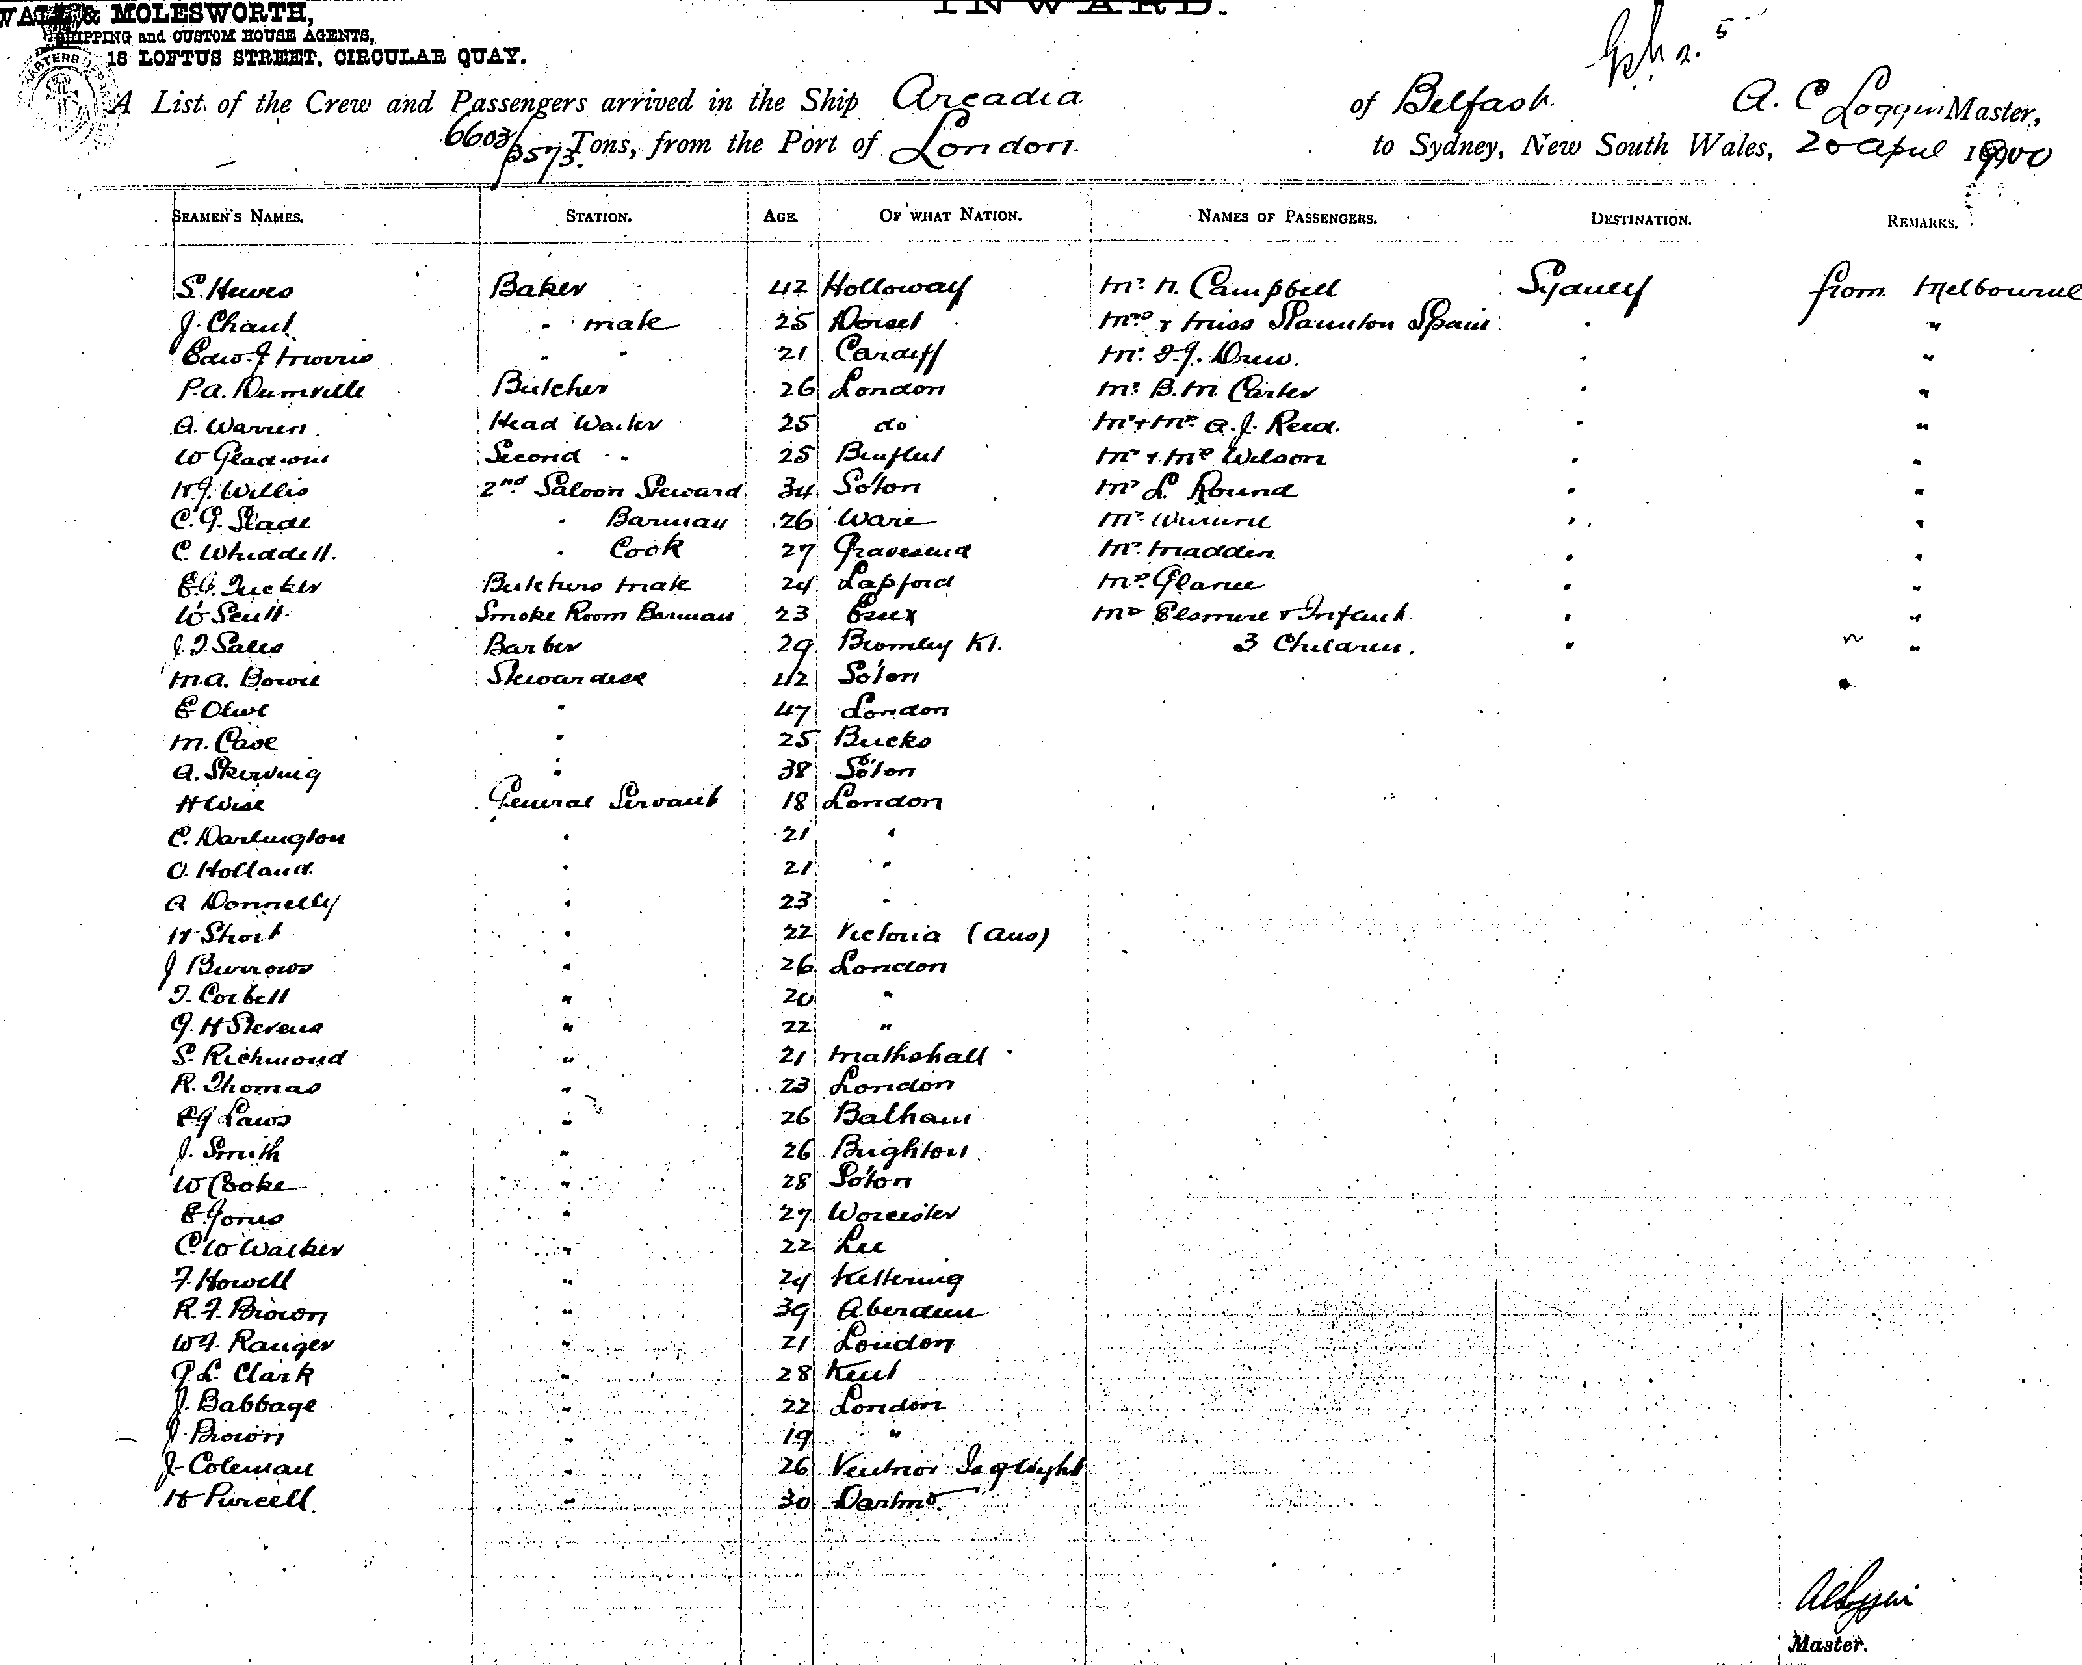 INWARD.
WALL & MOLESWORTH,
SHIPPING and CUSTOM HOUSE AGENTS,
18 LOFTUS STREET, CIRCULAR QUAY.
A List of the Crew and Passengers arrived in the Ship Arcadia of Belfast A. C Loggin Master,
6603/3573 Tons, from the Port of London to Sydney, New South Wales, 20 April 1900
SEAMEN'S NAMES. STATION. AGE. OF WHAT NATION. NAMES OF PASSENGERS. DESTINATION. REMARKS.
S. Hewes Baker 42 Holloway Mr. N. Campbell Sydney from Melbourne
J. Chant " mate 25 Dorset Mrs & Miss Staunton Spain " "
Edw. J Morris " " 21 Cardiff Mr. F.J. Drew. " "
P.A. Dumville Butcher 26 London Mr B.M Carter " "
A. Warren Head Waiter 25 do Mr & Mrs A.J. Reid. " "
W Second " 25 Mr & Mrs Wilson " "
H.J. Willis 2nd Saloon Steward 34 So'ton Mr L. Round " "
C.G. Slade " Barman 26 Ware Mr. " "
C. Whiddett. " Cook 27 Gravesend Mr. Madden " "
E.G. Tucker Butchers mate 24 Lapford Mr. " "
W Scutt Smoke Room Barman 23 Essex Mrs Elsmure & Infant " "
J.F Sales Barber 29 Bromley Kt. 3 Children. " "
M.A. Bowie Stewardess 42 So'ton
E Olive " 47 London
M. Case " 25 Bucks
A. Skirving " 38 So'ton
H Wise General Servant 18 London
C. Darlington " 21 "
O. Holland " 21 "
A Donnelly " 23 "
H Short " 22 Victoria (Aus)
J Burrows " 26 London
F. Corbett " 20 "
G. H Stevens " 22 "
S. Richmond " 21 Mathshall
R. Thomas " 23 London
E G Laws " 26 Balham
J. Smith " 26 Brighton
W Cooke " 28 So'ton
E. Jones " 27 Worcester
C. W Walker " 22 Lee
F. Howell " 24 Kettering
R. F. Brown " 39 Aberdeen
W F. Ranger " 21 London
G L. Clark " 28 Kent
J. Babbage " 22 London
J. Brown " 19 "
J. Coleman " 26 Ventnor I. of Wight
H Purcell. " 30 Dartmo.
Master.